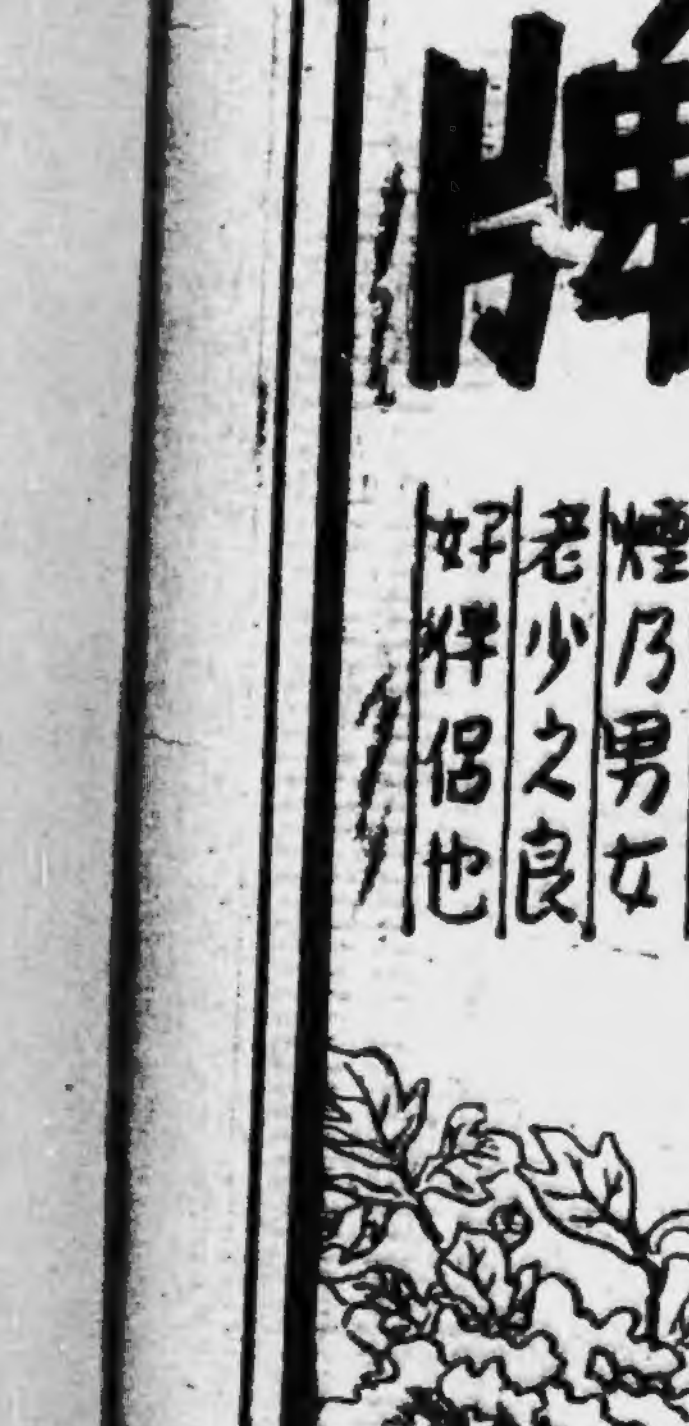 牌
煙乃男女
老少之良
好伴侣也